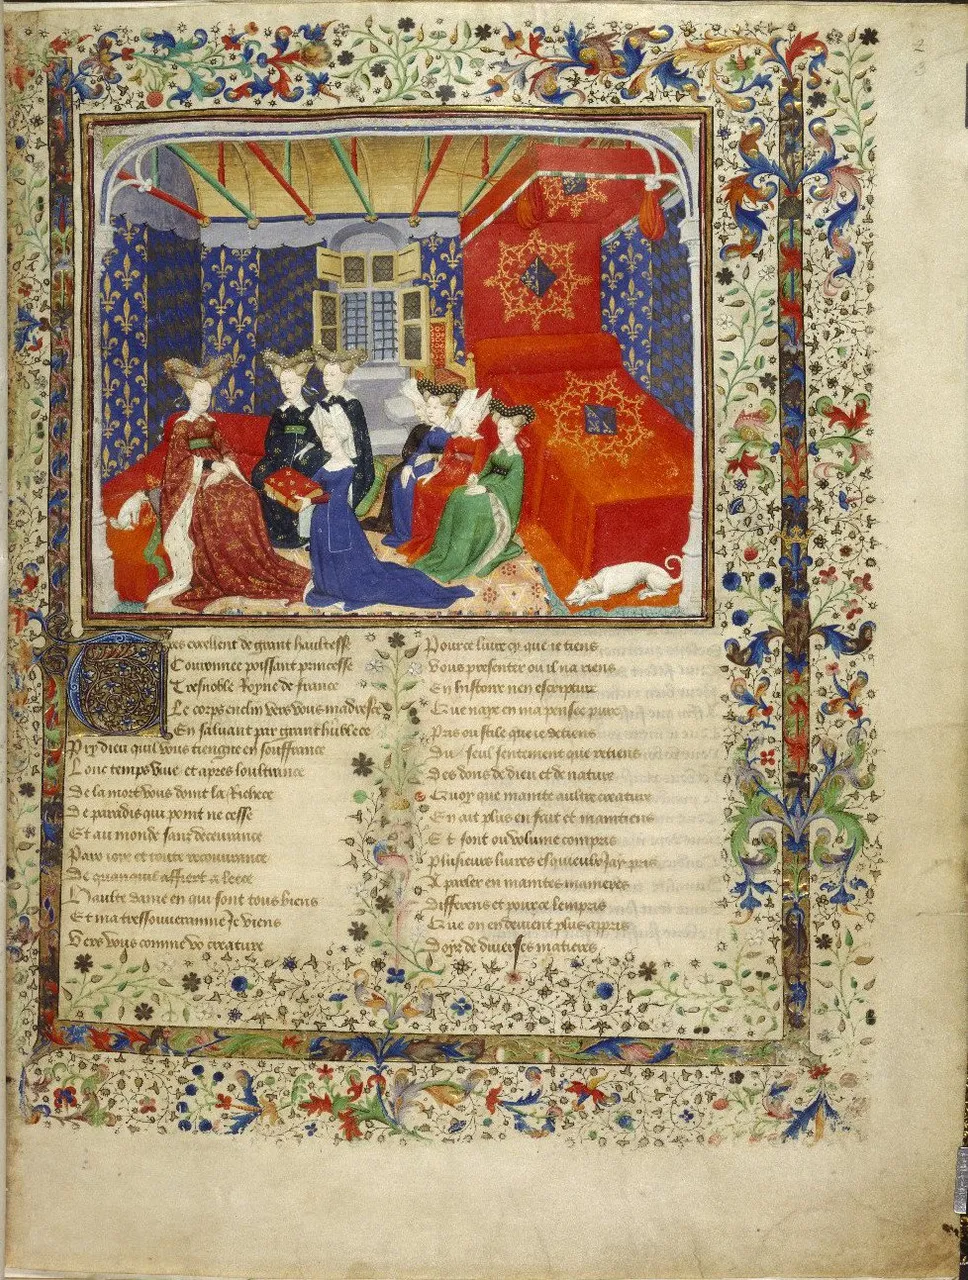 Tres excellent de grant haultesse
Couronnee poissant princesse
Tres noble Royne de france
Le corps enclin vers vous madresce
En saluant par grant humblece
Pry dieu quil vous tiengne en souffrance
Lonc temps viue et apres loultrance
De la mort vous doint la richece
De paradis qui point ne cesse
Et au monde sanz decevrance
Paix ioye et toute recouvrance
De quanquil affiert a leece
Haulte dame en qui sont tous biens
Et ma tressouverainne Je viens
Vers vous comme vo creature
Pour ce livre cy que ie tiens
Vous presenter ou il na riens
En histoire nen escripture
Que naye en ma pensee pure
Pris ou stile que ie detiens
Du seul sentement que retiens
Des dons de dieu et de nature
Quoy que mainte aultre creature
En ait plus en fait et maintiens
Et sont ou volume compris
Plusieurs livres esquieulx Jay pris
A parler en maintes manieres
Differens et pour ce lempris
Que on en devient plus appris
Doyr de diverses matieres